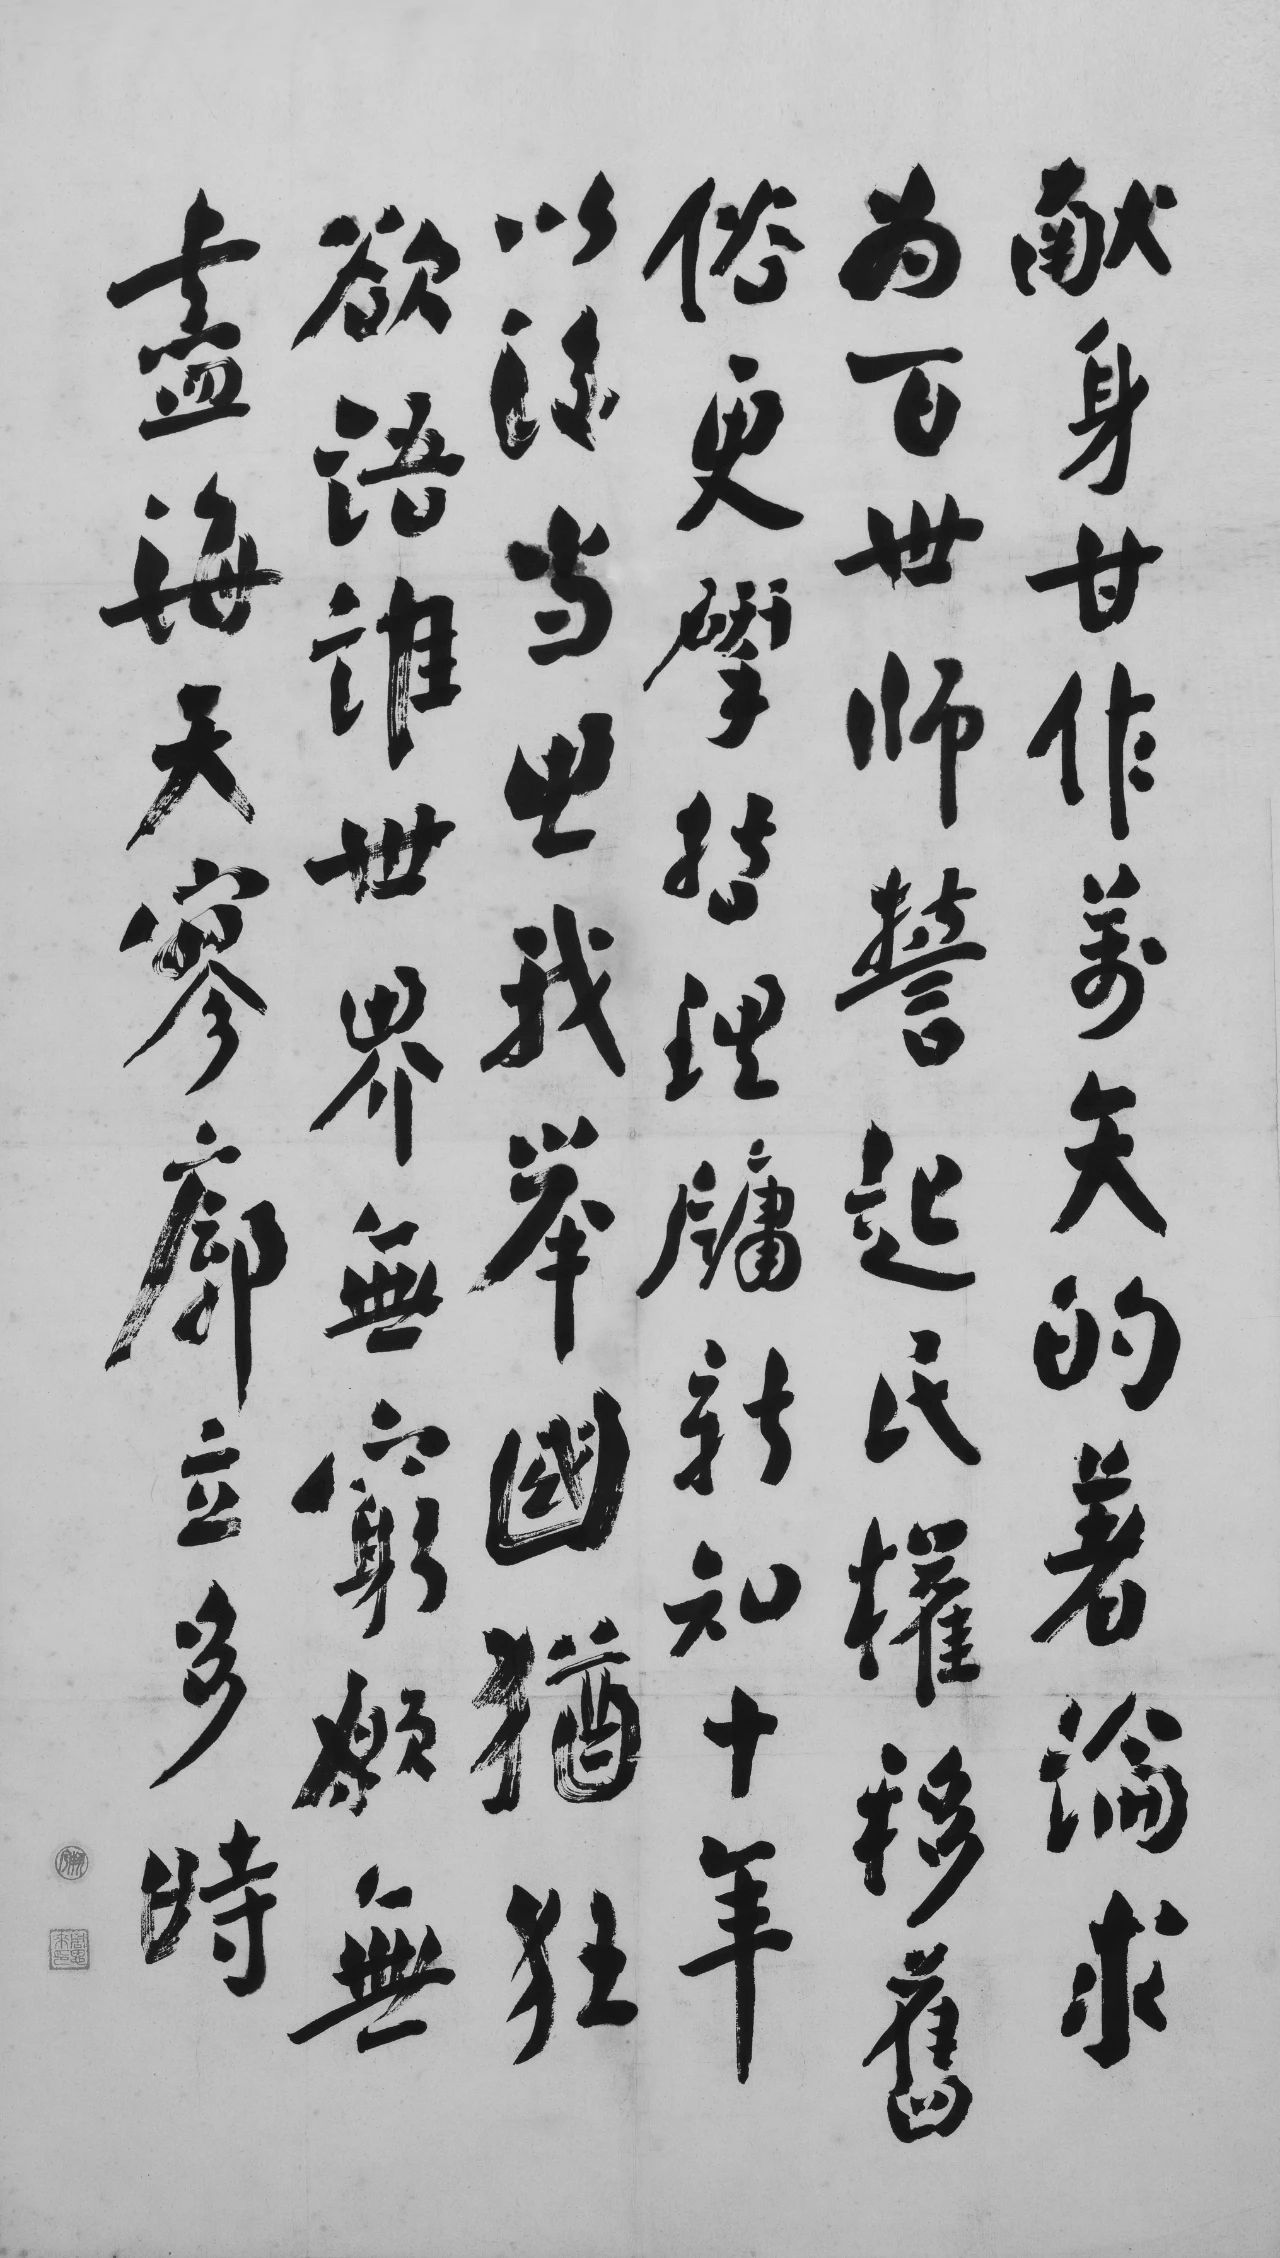 献身甘作萬矢的著論求
為百世師誓起民權移舊
俗更揅哲理牖新知十年
以後当思我舉國猶狂
欲語誰世界無窮願無
盡海天寥廓立多時